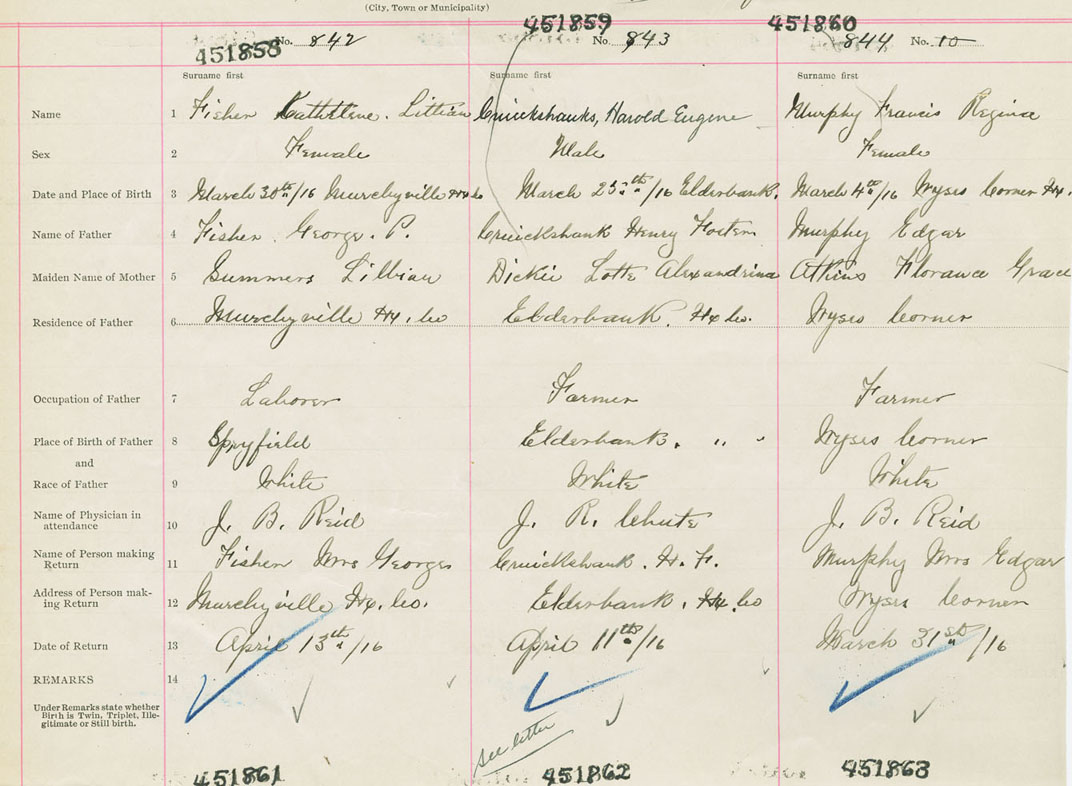 (City, Town or Municipality)
451858 No. 842 451859 No. 843 451860 844 No. 10
Surname first Surname first Surname first
Name 1 Fisher Kathtlene. Littian Cruickshanks, Harold Eugene Murphy Francis Regina
Sex 2 Female Male Female
Date and Place of Birth 3 March 30th/16 Murchyville Hx Co March 25th/16 Elderbank. March 4th/16 Wyses Corner Hx.
Name of Father 4 Fisher. George. P. Cruickshank Henry Foster Murphy Edgar
Maiden Name of Mother 5 Summers Lillian Dickie Lotte Alexandrina Atkins Florance Grace
Residence of Father 6 Murchyville Hx. Co Elderbank. Hx Co. Wyses Corner
Occupation of Father 7 Laborer Farmer Farmer
Place of Birth of Father 8 Spryfield Elderbank. " " Wyses Corner
and
Race of Father 9 White White White
Name of Physician in
attendance 10 J. B. Reid J. R. Chute J. B. Reid
Name of Person making
Return 11 Fisher Mrs George Cruickshank. H. F. Murphy Mrs Edgar
Address of Person mak-
ing Return 12 Murchyville Hx. Co. Elderbank. Hx. Co Wyses Corner
Date of Return 13 April 13th/16 April 11th/16 March 31st/16
REMARKS 14
Under Remarks state whether
Birth is Twin, Triplet, Ille-
gitimate or Still birth.
see letter
451861 451862 451863